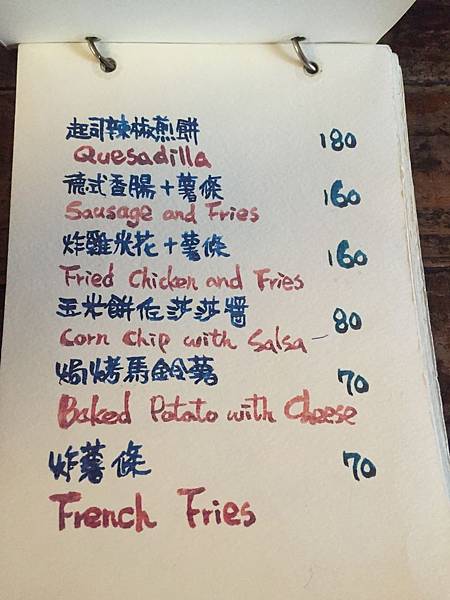 起司辣椒煎餅 180
Quesadilla
德式香腸+薯條 160
Sausage and Fries
炸雞米花+薯條 160
Fried Chicken and Fries
玉米餅佐莎莎醬 80
Corn Chip with Salsa
焗烤馬鈴薯 70
Baked Potato with Cheese
炸薯條 70
French Fries